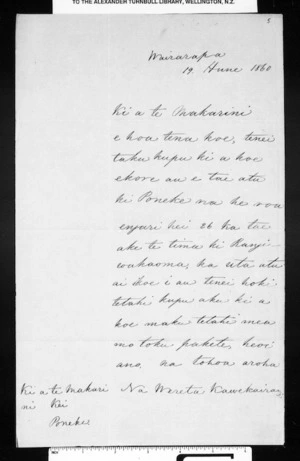 TO THE ALEXANDER TURNBULL LIBRARY, WELLINGTON, N.Z.
5
Wairarapa
19. Hune 1860
Ki a te Makarini
e hoa tena koe, tenei
taku kupu ki a koe
ekore au e tae atu
ki Poneke na he roa
engari hei 26 ka tae
ake te tima ki Rangi
wakaoma, ka uta atu
ai koe i au tenei hoki
tetahi kupu aku ki a
koe maku tetahi mea
mo toku pakete, heoi
ano na tohoa aroha
Na Wereta Kawekairangi
Ki a te Makari
ni Kei
Poneke